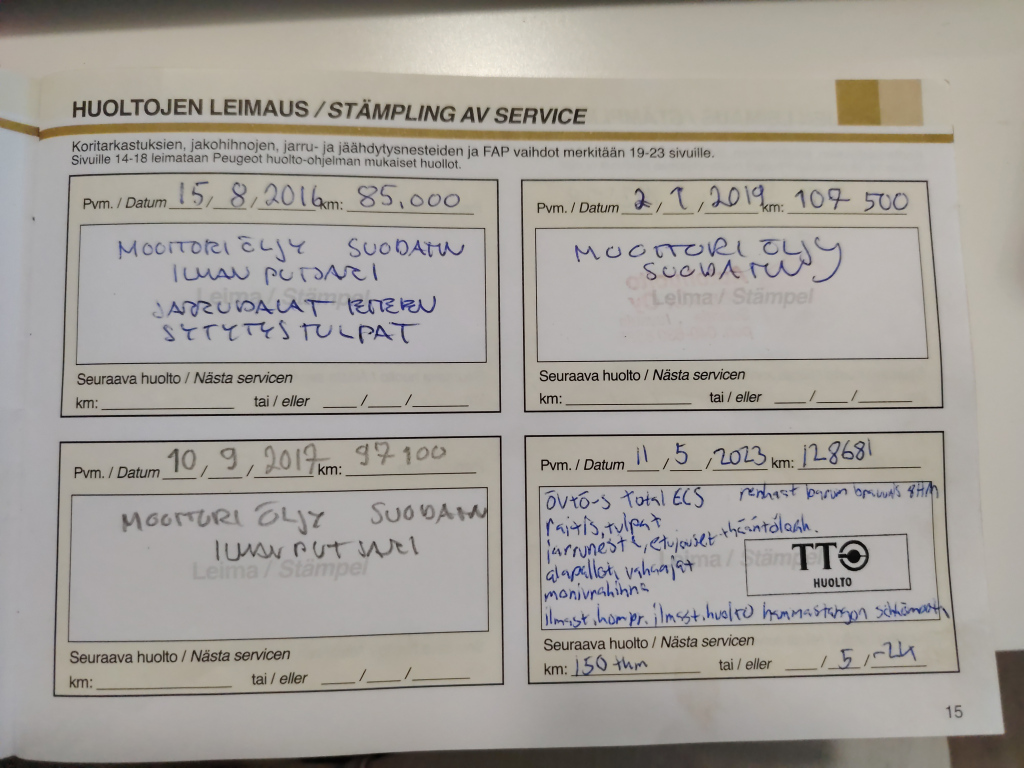 HUOLTOJEN LEIMAUS / STÄMPLING AV SERVICE
Koritarkastuksien, jakohihnojen, jarru- ja jäähdytysnesteiden ja FAP vaihdot merkitään 19-23 sivuille.
Sivuille 14-18 leimataan Peugeot huolto-ohjelman mukaiset huollot.
Pvm. / Datum 15, / 8, / 2016 km: 85,000
MOOTTORI ÖLJY SUODATIN
ILMAN PUTSARI
JARRUPALAT ETEEN
SYTYTYSTULPAT
Leima / Stämpel
Seuraava huolto / Nästa servicen
km: tai / eller / /
Pvm. / Datum 2 / 1 / 2019 km: 107 500
MOOTTORI ÖLJY
SUODATIN
Leima / Stämpel
Seuraava huolto / Nästa servicen
km: tai / eller / /
Pvm. / Datum 10 / 9 / 2017 km: 97100
MOOTTORI ÖLJY SUODATIN
ILMAN PUTSARI
Leima / Stämpel
Seuraava huolto / Nästa servicen
km: tai / eller / /
Pvm. / Datum 11 / 5 / 2023 km: 128681
övtö-s Total ECS renkaat barum
raitis, tulpat
jarruneste, etujouset
alapallot, vakaajat
moniurahihna
ilmast. kompr. ilmast. huolto hammastangon
TTO
HUOLTO
Seuraava huolto / Nästa servicen
km: 150 tkm tai / eller / 5 / -24
15